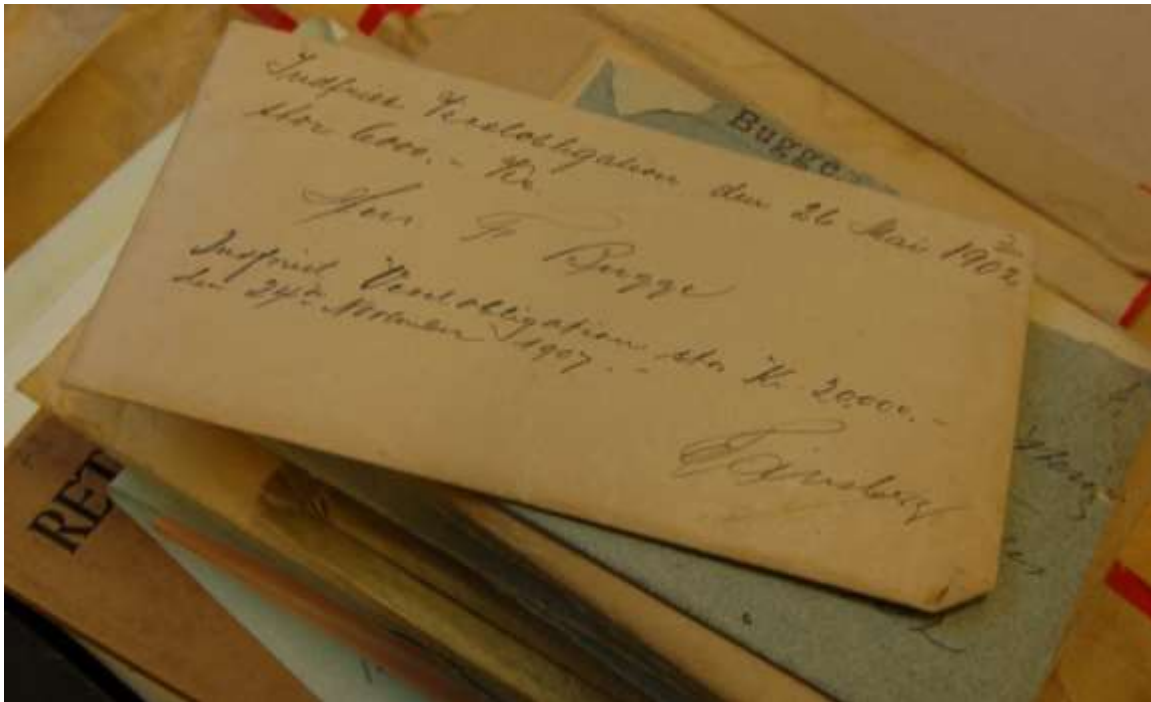 Bugge
Indfriet Vexelobligation den 26 Mai 1902
stor 6000.- Kr.
Herr F Bugge
Indfriet Vexelobligation stor Kr 20,000.-
den 24de November 1907.-
Tønsberg
RET